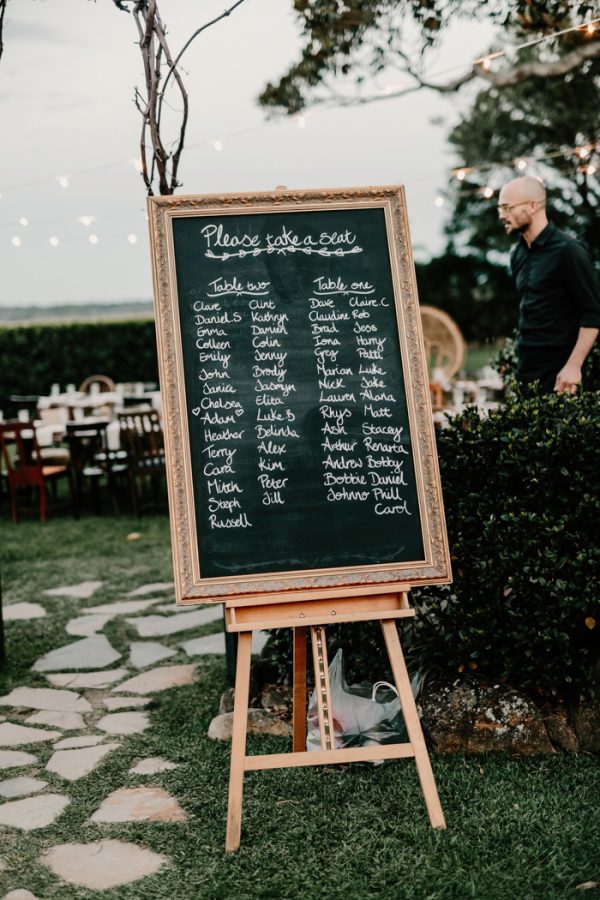 Please take a seat
Table two
Clare Clint
Daniel.S Kathryn
Emma Damien
Colleen Colin
Emily Jenny
John Brody
Janice Jasmyn
Chelsea Elita
♡Adam♡ Luke B
Heather Belinda
Terry Alex
Cara Kim
Mitch Peter
Steph Jill
Russell
Table one
Dave Claire.C
Claudine Rob
Brad Jess
Iona Harry
Greg Patti
Marian Luke
Nick Jake
Lauren Alana
Rhys Matt
Ash Stacey
Arthur Renarta
Andrew Bobby
Bobbie Daniel
Johnno Phill
Carol